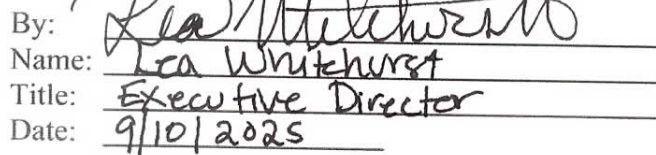 By: Lea Whitehurst
Name: Lea Whitehurst
Title: Executive Director
Date: 9/10/2025